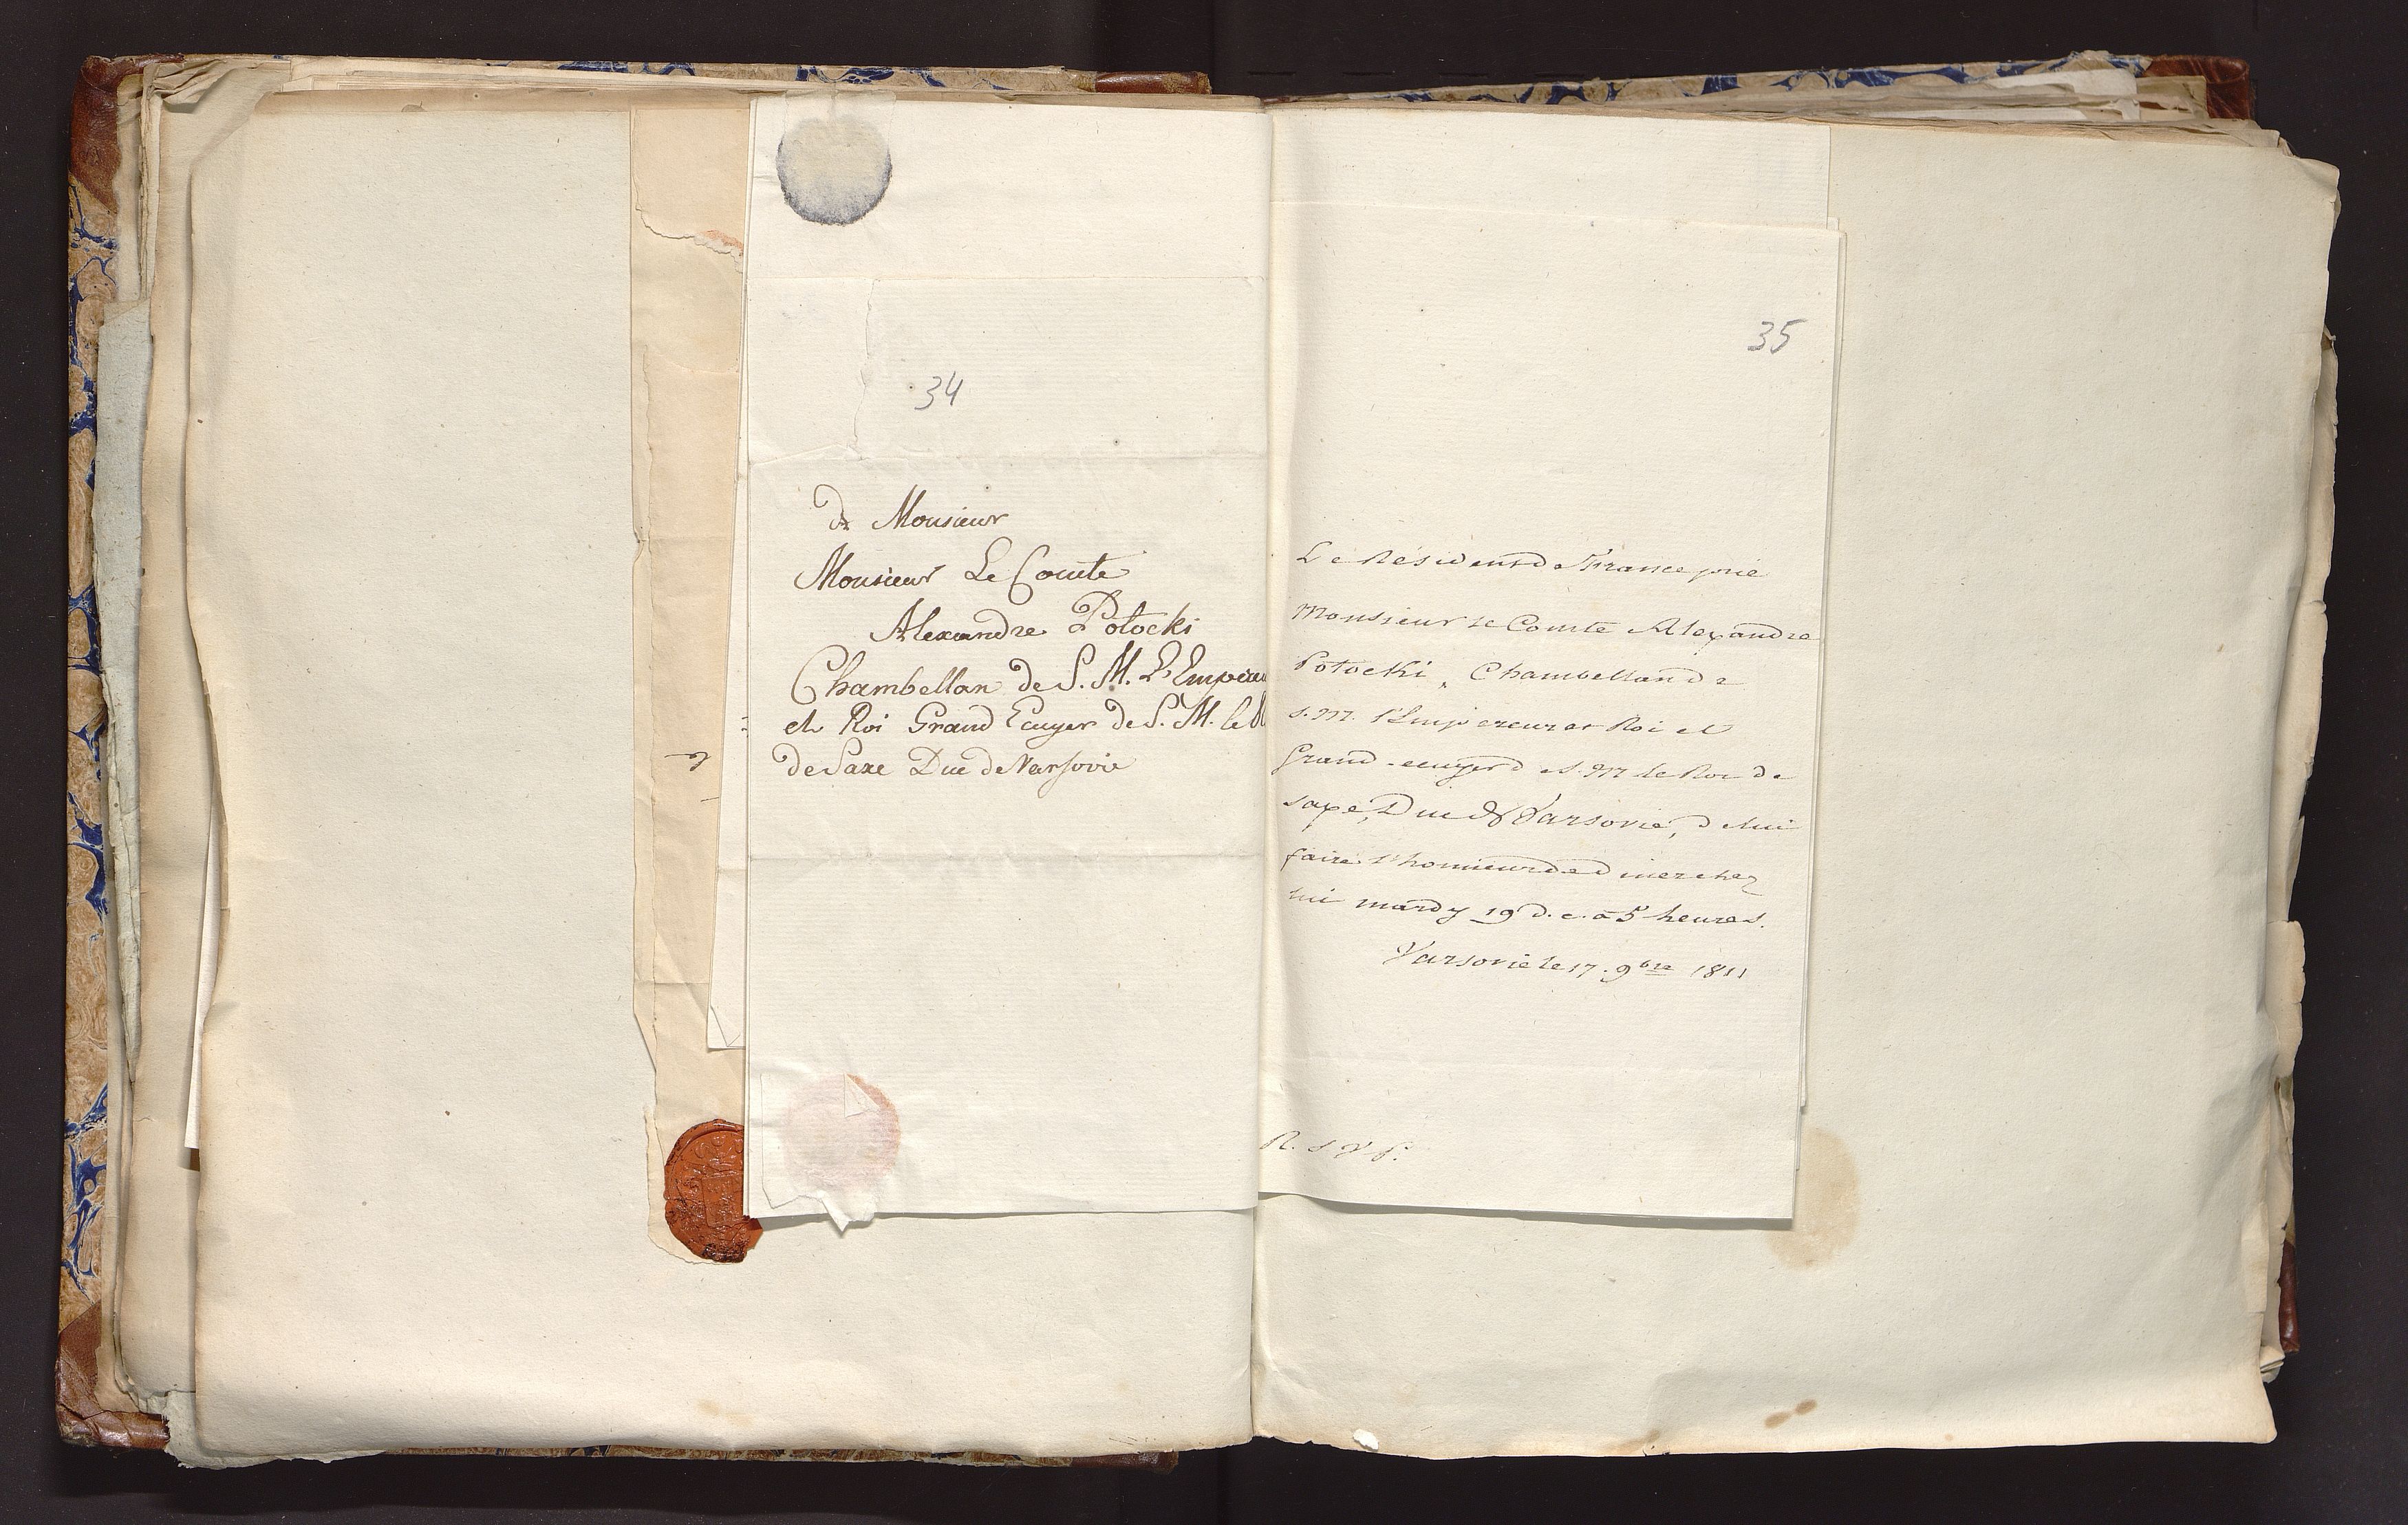 34
à Monsieur
Monsieur Le Comte
Alexandre Potocki
Chambellan de S. M. L'Empereu
et Roi Grand Ecuyer de S. M. le R
de Saxe Duc de Varsovie
35
Le Résident de France prie
Monsieur le Comte Alexandre
Potocki, Chambellan de
S. M. l'Empereur et Roi et
Grand-ecuyer de S. M le Roi de
Saxe, Duc de Varsovie, de lui
faire l'honneur de diner chez
lui mardy 19 d. c. à 5 heures.
Varsovie le 17. 9bre 1811
R. S. V. P.